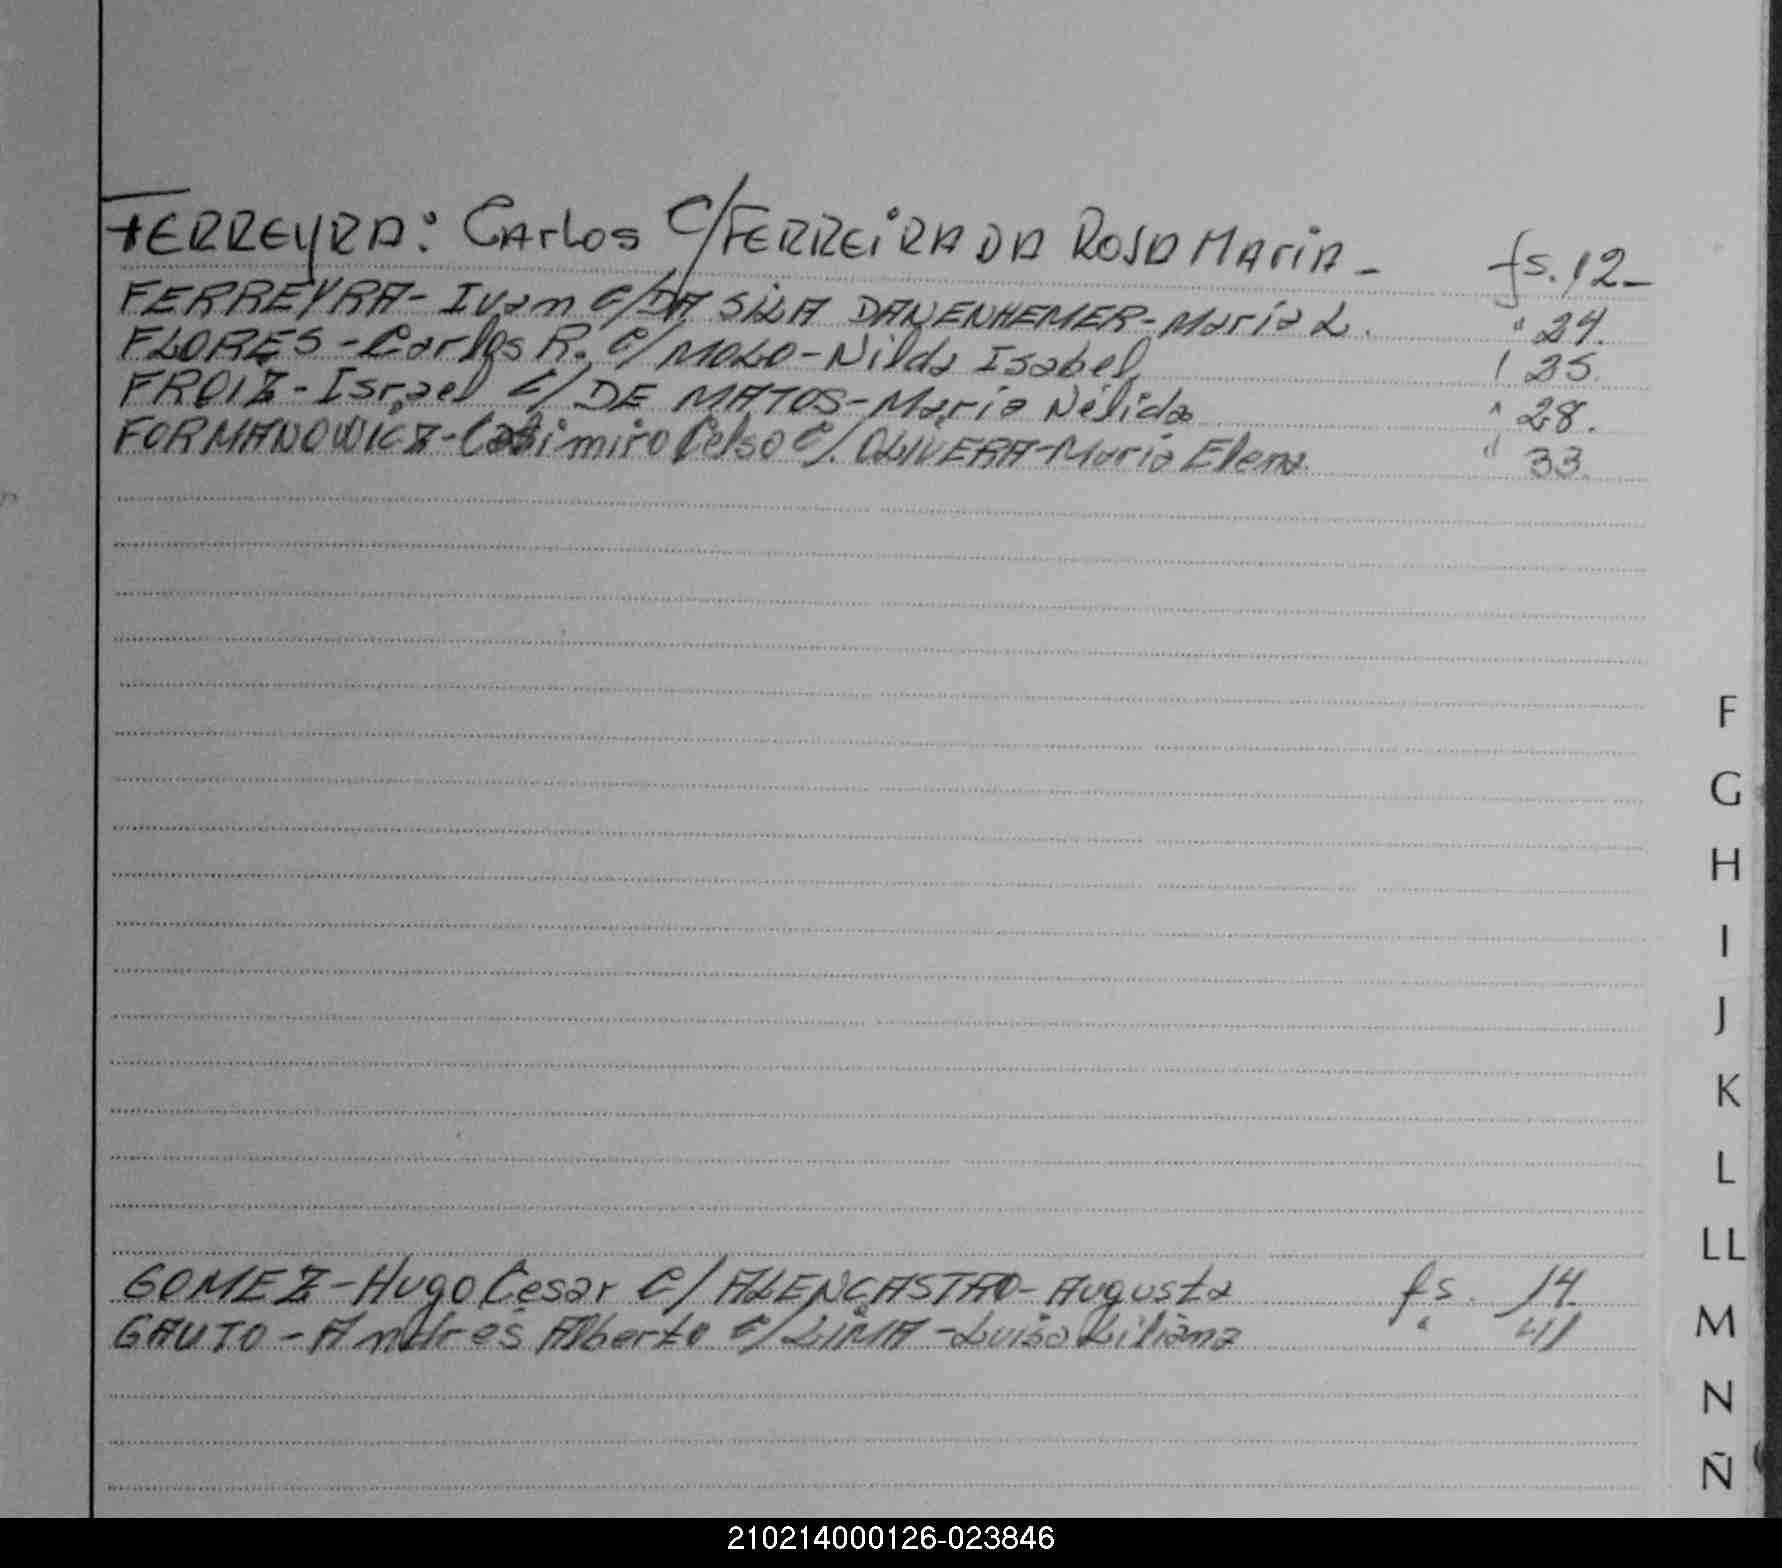 FERREYRA: Carlos C/FERREIRA DA ROSA MARIA - fs. 12-
FERREYRA - Ivam C/DA SILA DANENHEMER - Maria L. " 24.
FLORES - Carlos R. C/ MOLO - Nilda Isabel " 25.
FROIZ - Israel C/ DE MATOS - Maria Nélida " 28.
FORMANOWICZ - Casimiro Celso C/. OLIVERA - Maria Elena. " 33.
F
G
H
I
J
K
L
LL
GOMEZ - Hugo Cesar C/ ALENCASTRO - Augusta fs. 14.
GAUTO - Andres Alberto C/ LIMA - Luisa Liliana " 41
M
N
Ñ
210214000126-023846